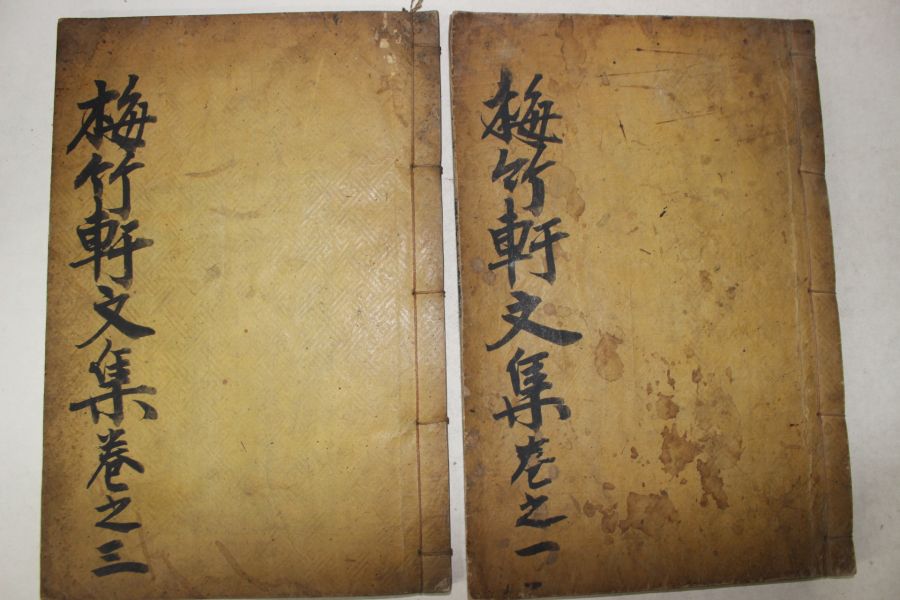 梅竹軒文集卷之一
梅竹軒文集卷之三